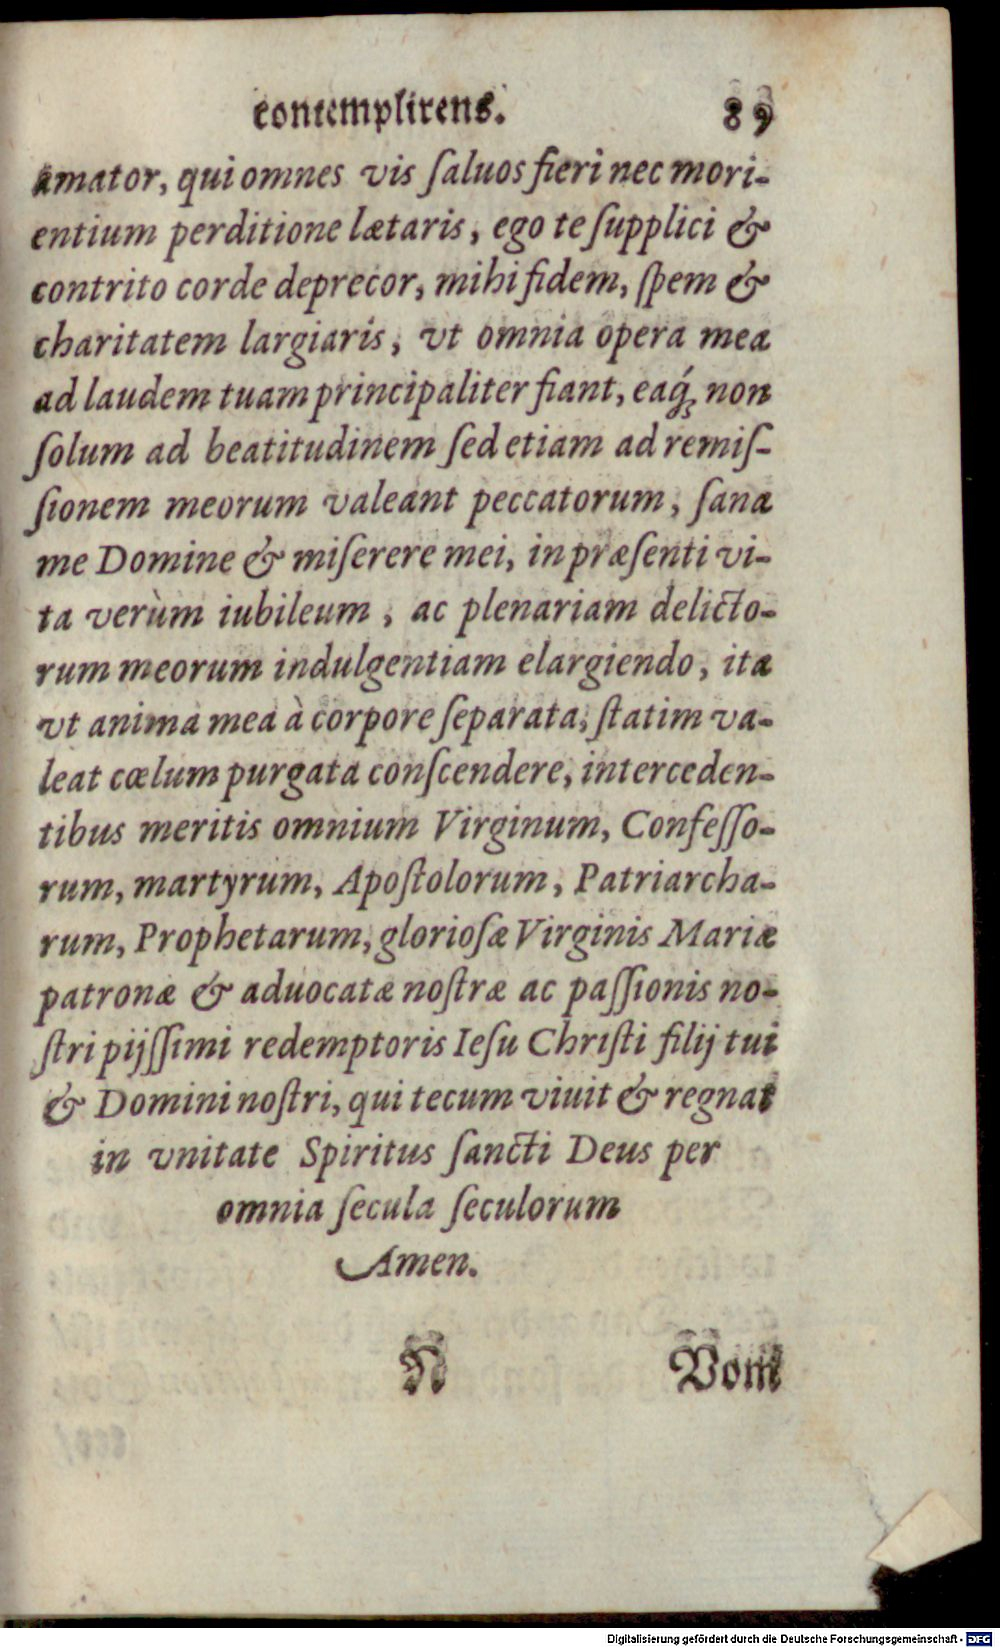 contemplirens. 89
amator, qui omnes vis ſaluos fieri nec mori-
entium perditione lætaris, ego te ſupplici &
contrito corde deprecor, mihi fidem, ſpem &
charitatem largiaris, vt omnia opera mea
ad laudem tuam principaliter fiant, eaq́; non
ſolum ad beatitudinem ſed etiam ad remiſ-
ſionem meorum valeant peccatorum, ſana
me Domine & miſerere mei, in præſenti vi-
ta verùm iubileum, ac plenariam delicto-
rum meorum indulgentiam elargiendo, ita
vt anima mea à corpore ſeparata, ſtatim va-
leat cœlum purgata conſcendere, interceden-
tibus meritis omnium Virginum, Confeſſo-
rum, martyrum, Apoſtolorum, Patriarcha-
rum, Prophetarum, glorioſæ Virginis Mariæ
patronæ & aduocatæ noſtræ ac paſſionis no-
ſtri pijſſimi redemptoris Ieſu Chriſti filij tui
& Domini noſtri, qui tecum viuit & regnat
in vnitate Spiritus ſancti Deus per
omnia ſecula ſeculorum
Amen.
N Vom
Digitalisierung gefördert durch die Deutsche Forschungsgemeinschaft - DFG